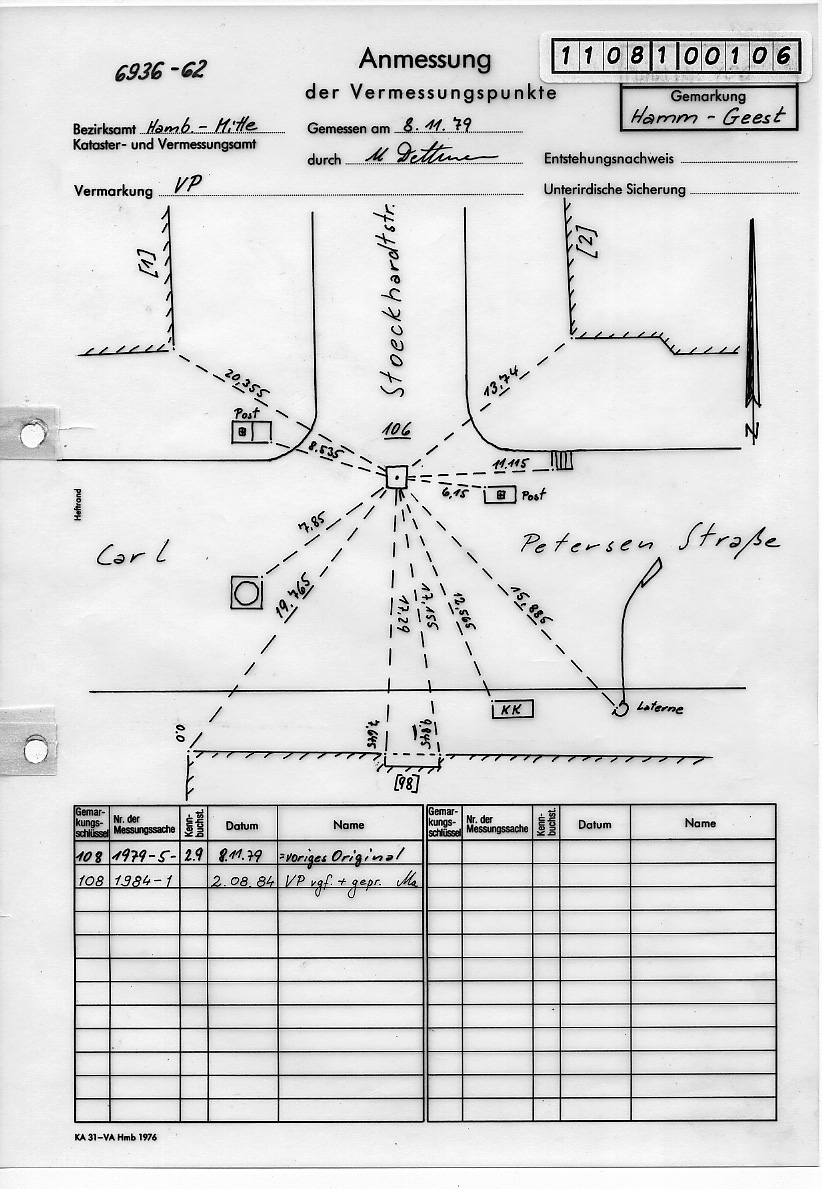 6936-62
Anmessung
der Vermessungspunkte
11081 00106
Gemarkung
Hamm - Geest
Bezirksamt Hamb. - Mitte
Kataster- und Vermessungsamt
Gemessen am 8.11.79
durch
Entstehungsnachweis
Vermarkung VP
Unterirdische Sicherung
[1]
Stoeckhardtstr.
[2]
20,355
13,74
Post
106
8.535
11.115
N
6,15
Post
Heftrand
7,85
Carl
Petersen Straße
19.765
17,29
17,155
12,565
15,885
0.0
7,645
9,845
KK
Laterne
[98]
Gemar-
kungs-
schlüssel
Nr. der
Messungssache
Kenn-
buchst.
Datum
Name
Gemar-
kungs-
schlüssel
Nr. der
Messungssache
Kenn-
buchst.
Datum
Name
108 1979-5- 2.9 8.11.79 =voriges Original
108 1984-1 2.08.84 VP vgf. + gepr. Ma
KA 31–VA Hmb 1976